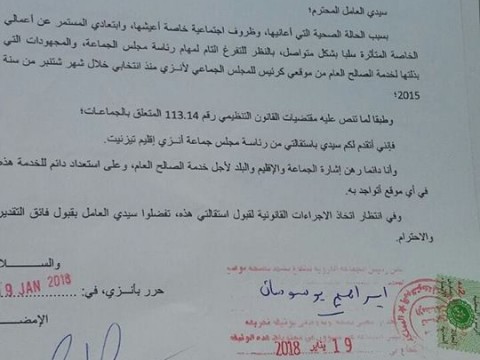 سيدي العامل المحترم؛
بسبب الحالة الصحية التي أعانيها، وظروف اجتماعية خاصة أعيشها، وابتعادي المستمر عن أعمالي
الخاصة المتأثرة سلبا بشكل متواصل، بالنظر للتفرغ التام لمهام رئاسة مجلس الجماعة، والمجهودات التي
بذلتها لخدمة الصالح العام من موقعي كرئيس للمجلس الجماعي لأنزي منذ انتخابي خلال شهر شتنبر من سنة
2015؛
وطبقا لما تنص عليه مقتضيات القانون التنظيمي رقم 113.14 المتعلق بالجماعات؛
فإنني أتقدم لكم سيدي باستقالتي من رئاسة مجلس جماعة أنزي إقليم تيزنيت.
وأنا دائما رهن إشارة الجماعة والإقليم والبلد لأجل خدمة الصالح العام، وعلى استعداد دائم للخدمة هذه
في أي موقع أتواجد به.
وفي انتظار اتخاذ الاجراءات القانونية لقبول استقالتي هذه، تفضلوا سيدي العامل بقبول فائق التقدير
والاحترام.
والسلا
حرر بأنزي، في: 9 JAN 2018
الإمضا
ابراهيم بوسوسان
19 يناير 2018